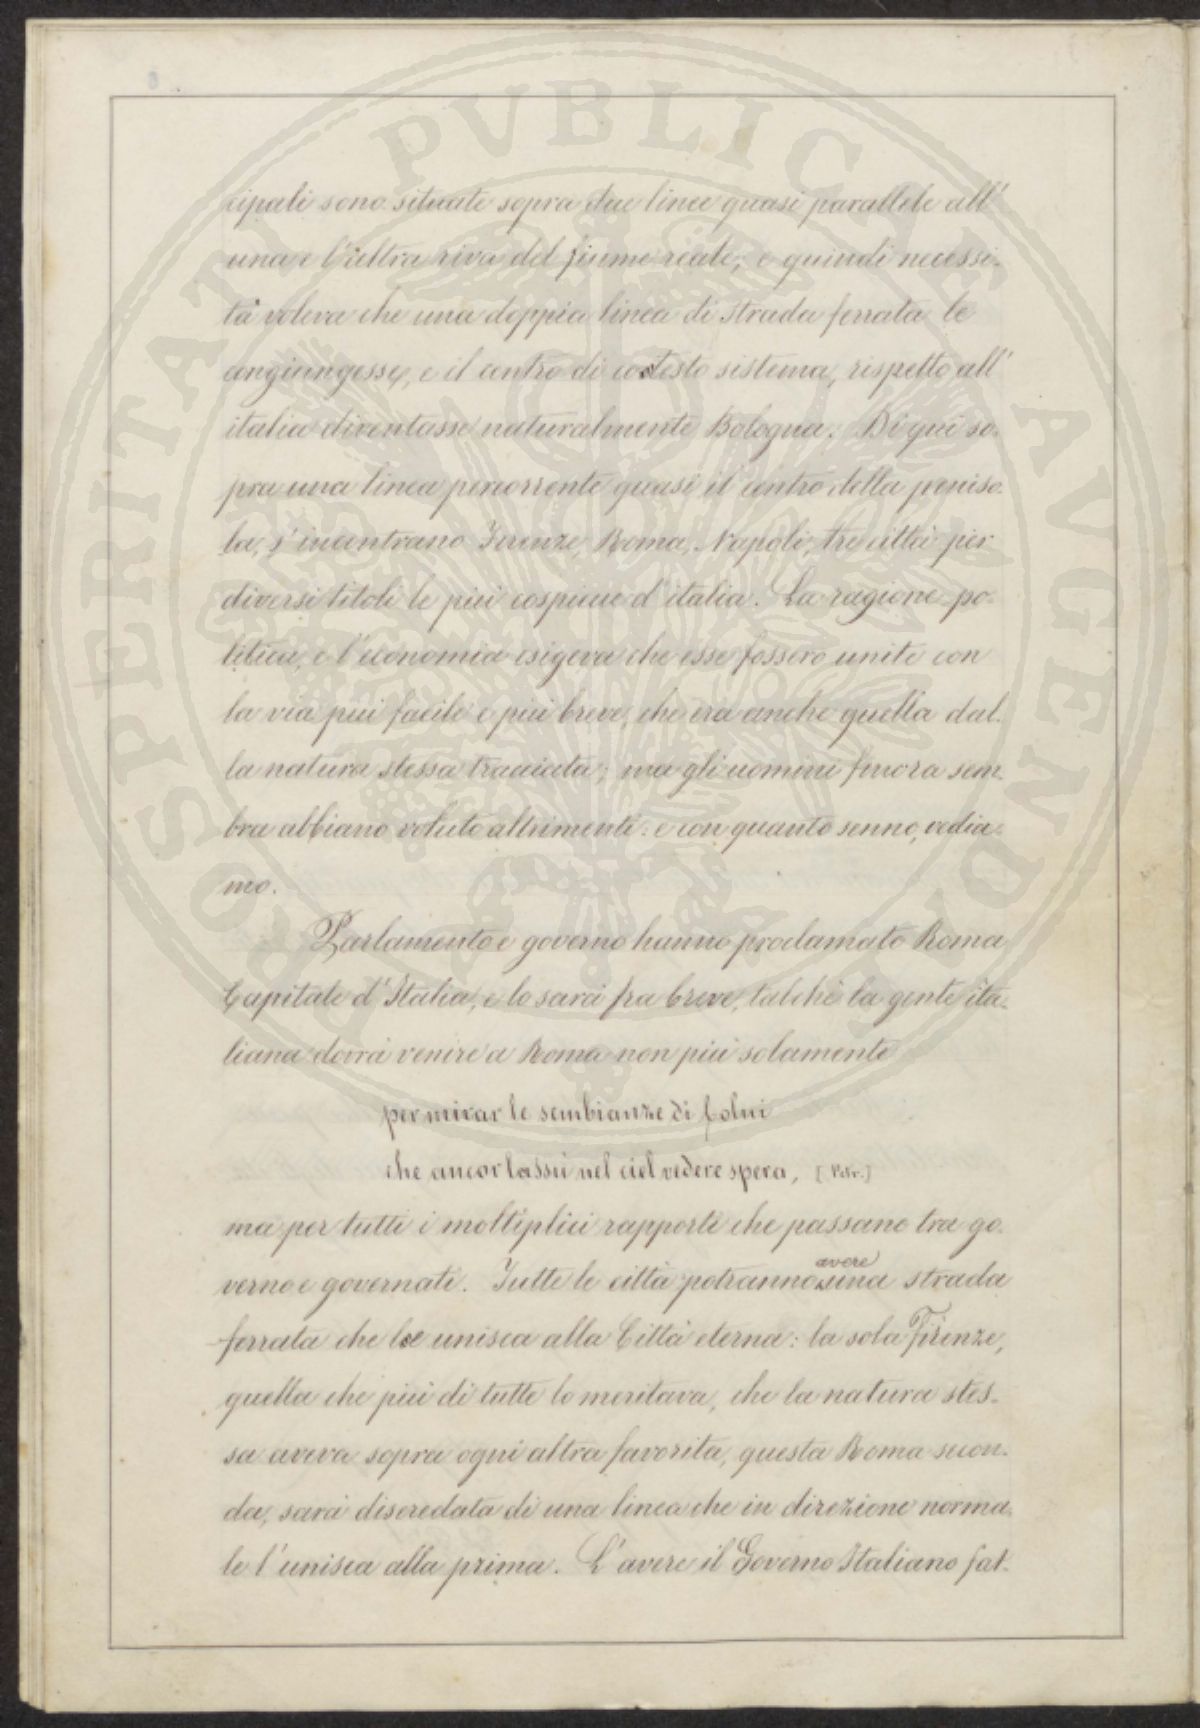 cipali sono situate sopra due linee quasi parallele all'
una e l'altra riva del fiume reale; e quindi necessi-
tà voleva che una doppia linea di strada ferrata le
congiungesse, e il centro di cotesto sistema, rispetto all'
italia diventasse naturalmente Bologna. Di qui so-
pra una linea percorrente quasi il centro della peniso-
la, s'incontrano Firenze, Roma, Napoli, tre città per
diversi titoli le più cospicue d'italia. La ragione po-
litica, e l'economia esigeva che esse fossero unite con
la via più facile e più breve, che era anche quella dal-
la natura stessa tracciata; ma gli uomini finora sem-
bra abbiano voluto altrimenti: e con quanto senno, vedia-
mo.
Parlamento e governo hanno proclamato Roma
Capitale d'Italia, e lo sarà fra breve, talchè la gente ita-
liana dovrà venire a Roma non più solamente
per mirar le sembianze di Colui
che ancor lassù nel ciel vedere spera, [Petr.]
ma per tutti i moltiplici rapporti che passano tra go-
verno e governati. Tutte le città potranno avere una strada
ferrata che le unisca alla Città eterna: la sola Firenze,
quella che più di tutte lo meritava, che la natura stes-
sa aveva sopra ogni altra favorita, questa Roma secon-
da, sarà diseredata di una linea che in direzione norma-
le l'unisca alla prima. L'avere il Governo Italiano fat-
PROSPERITATI PVBLICAE AVGENDAE